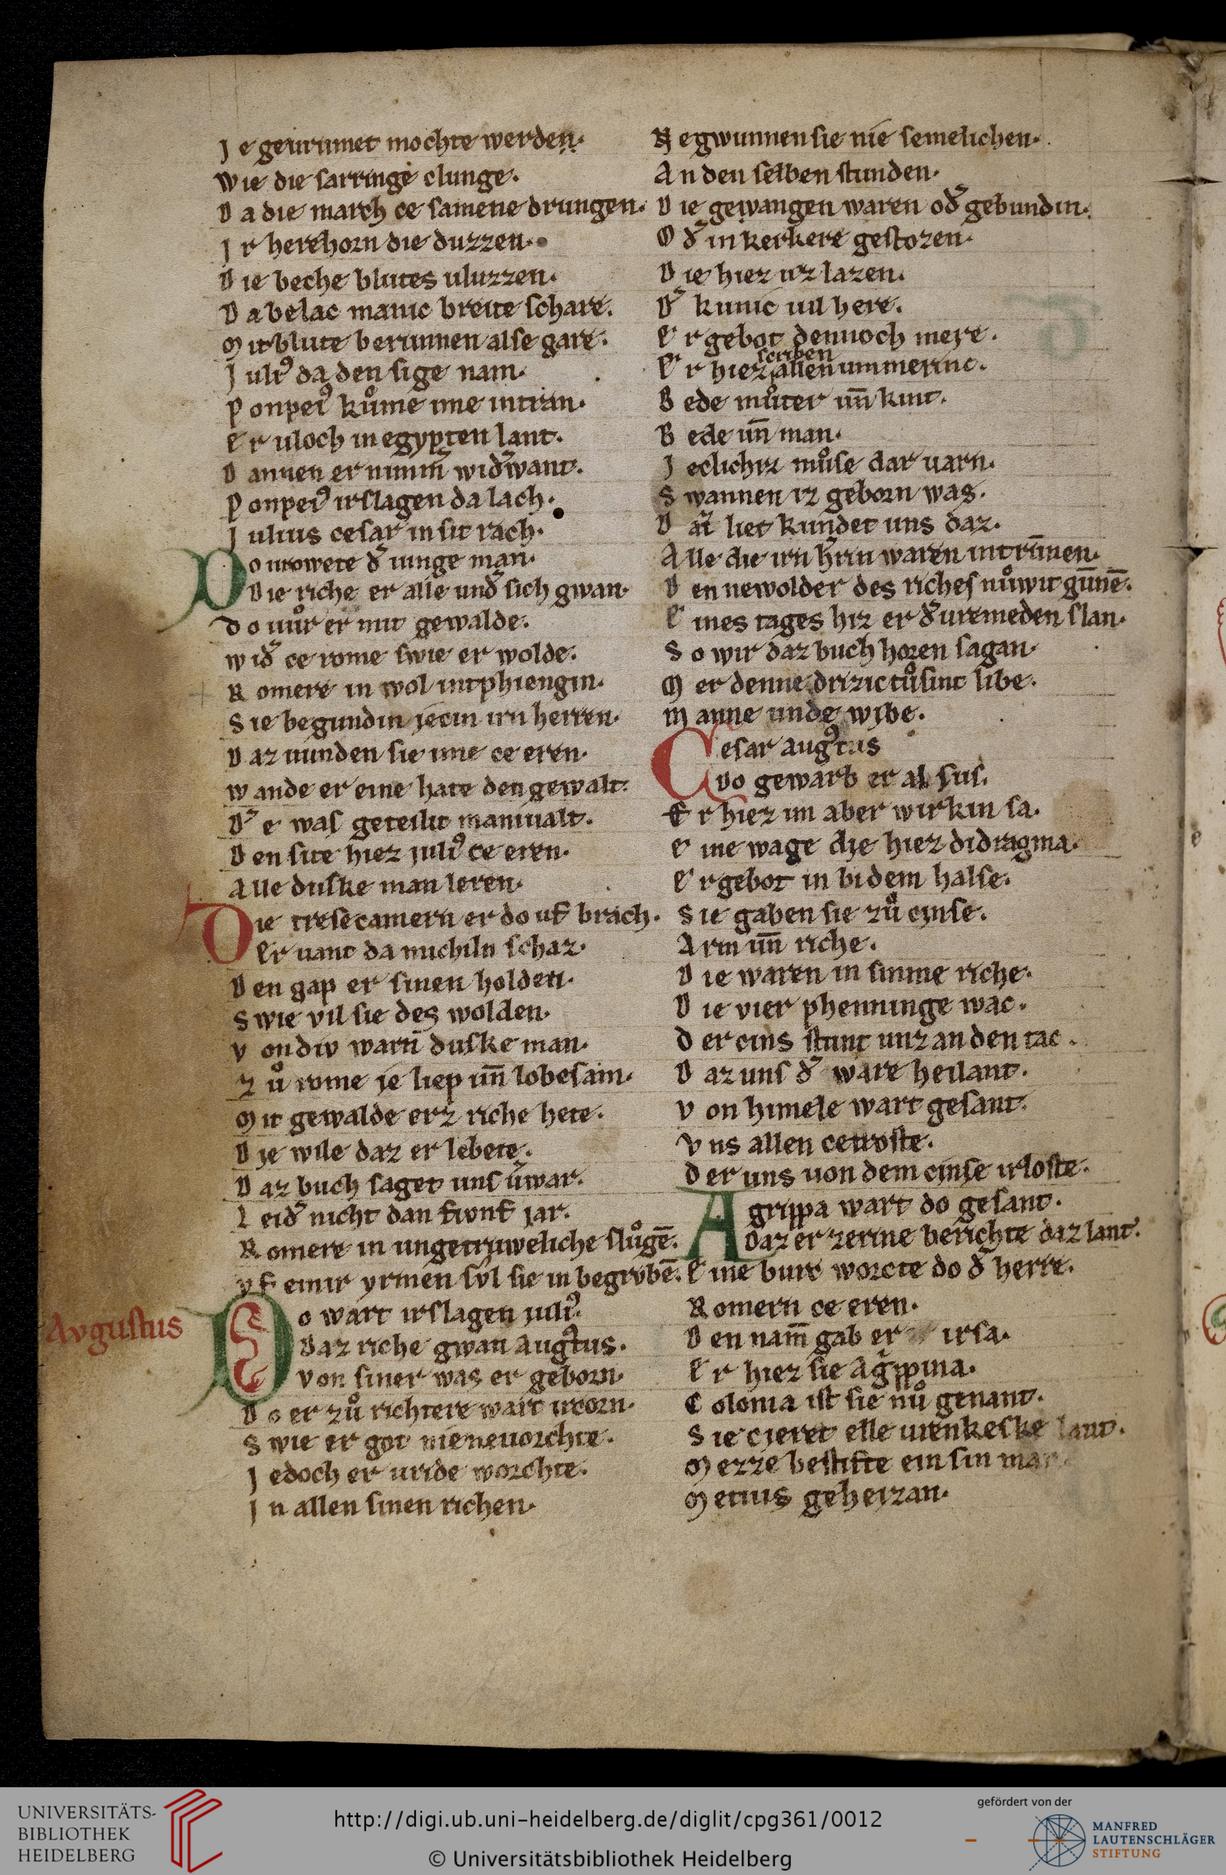 J e geurumet mochte werden·
W ie die sarringe clunge·
D a die march ce samene drungen·
J r herehorn die duzzen·
D ie beche blutes uluzzen·
D a belac manic breite schare·
M it blute berunnen alse gare·
J uliꝰ da den sige nam·
P onpeiꝰ kuͦme ime intran·
E r uloch in egypten lant·
D annen er nimm̄ wid͛want·
P onpeiꝰ irslagen da lach·
J ulius cesar in sit rach·
Do urowete d͛ iunge man·
Die riche er alle und͛ sich gwan·
do uuͦr er mit gewalde·
w id͛ ce rome swie er wolde·
R omere in wol intphiengin·
S ie begundin jecin irn herren·
D az uunden sie ime ce eren·
w ande er eine hate den gewalt·
D͛ e was geteilit manivalt·
D en site hiez juliꝰ ce eren·
A lle duske man leren·
Die tresecamern er do uf brach·
Er uant da michiln schaz·
D en gap er sinen holden·
S wie vil sie des wolden·
v on div warn̄ duske man·
Z uͦ rome je liep un̄ lobesam·
M it gewalde erz riche hete·
D je wile daz er lebete·
D az buch saget uns u͛war·
L eid͛ nicht dan fivnf jar·
R omere in ungetruweliche sluͦgē·
vf einir yrmen sv̂l sie in begrvbē·
Avgustus
Do wart irslagen juliꝰ·
Daz riche gwan Augꝰtus·
von siner was er geborn·
D o er zuͦ richtere wart irkorn·
S wie er got nie neuorchte·
J edoch er uride worchte·
J n allen sinen richen·
N egwunnen sie nie semelichen·
A n den selben stunden·
D ie gewangen waren od͛ gebundin·
O d͛ in kerkere gestozen·
D ie hiez irz lazen·
D͛ kunic uil here·
E r gebot dennoch mere·
scriben
E r hiez allen ummerinc·
B ede muͦter un̄ kint·
B ede un̄ man·
J eclichiz muͦse dar uarn·
S wannen iz geborn was·
D aͣt liet kundet uns daz·
A lle die irn h͛rin waren intrūnen·
D en newolder des riches nuͦwit gūnē·
E ines tages hiz er d͛ uremeden slan·
S o wir daz buch horen sagan·
M er denne drizic tuͦsint libe·
M anne unde wibe·
Cesar augꝰtus
Do gewarb er al sus·
E r hiez im aber wirkin sa·
E ine wage die hiez didragma·
E r gebot in bi dem halse·
S ie gaben sie zuͦ cinse·
A rm un̄ riche·
D ie waren in sinme riche·
D ie vier phenninge wac·
D er cins stunt unz an den tac·
D az uns d͛ ware heilant·
v on himele wart gesant·
V ns allen cetroste·
D er uns uon dem cinse irloste·
Agrippa wart do gesant·
Daz er zerine berichte daz lant·
E ine burc worcte do d͛ herre·
R omern ce eren·
D en nam̄ gab er irsa·
E r hiez sie Agrippina·
C olonia ist sie nuͦ genant·
S ie cieret elle urenkeske lant·
M ezze bestifte ein sin man
M etius geheizan·
UNIVERSITÄTS-
BIBLIOTHEK
HEIDELBERG
http://digi.ub.uni-heidelberg.de/diglit/cpg361/0012
© Universitätsbibliothek Heidelberg
gefördert von der
MANFRED
LAUTENSCHLÄGER
STIFTUNG